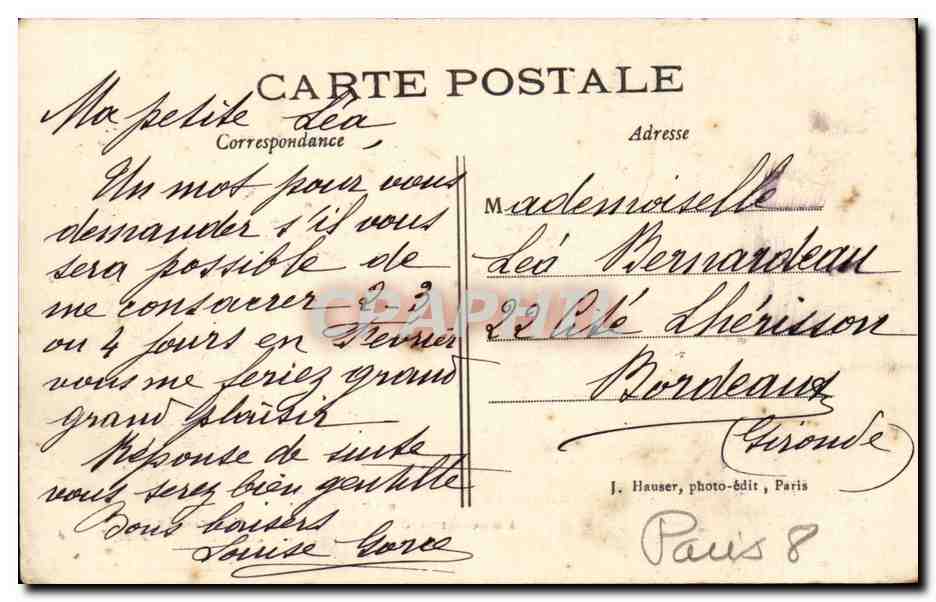 CARTE POSTALE
Ma petite Léa,
Correspondance
Un mot pour vous
demander s'il vous
sera possible de
me consacrer 2-3
ou 4 jours en Février
vous me feriez grand
grand plaisir
Réponse de suite
vous serez bien gentille
Bons baisers
Louise
Adresse
Mademoiselle
Léa Bernardeau
22 Cité Lhérisson
Bordeaux
(Gironde)
J. Hauser, photo-édit, Paris
Paris 8